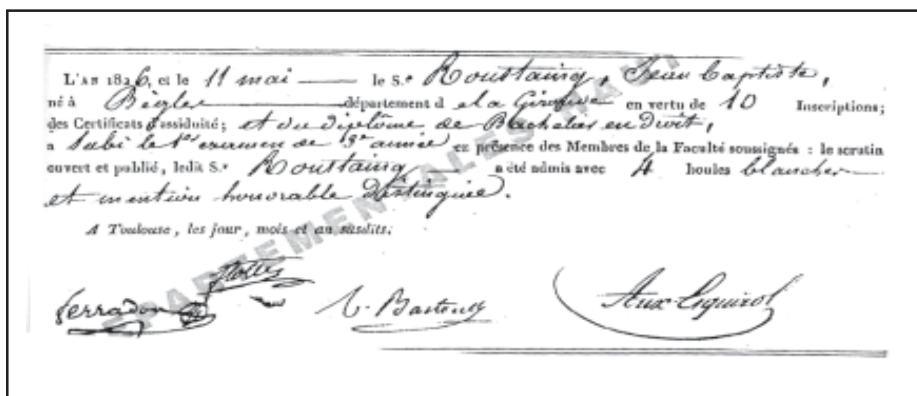 L'AN 1826, et le 11 mai — le S.r Roustaing, Jean Baptiste,
né à Bègles — département d e la Gironde en vertu de 10 Inscriptions;
des Certificats d'assiduité; et du diplôme de Bachelier en droit,
a subi le 1er examen de 3e année en présence des Membres de la Faculté soussignés : le scrutin
ouvert et publié, ledit S.r Roustaing — a été admis avec 4 boules blanches —
et mention honorable distinguée.
A Toulouse, les jour, mois et an susdits.
Ferradou